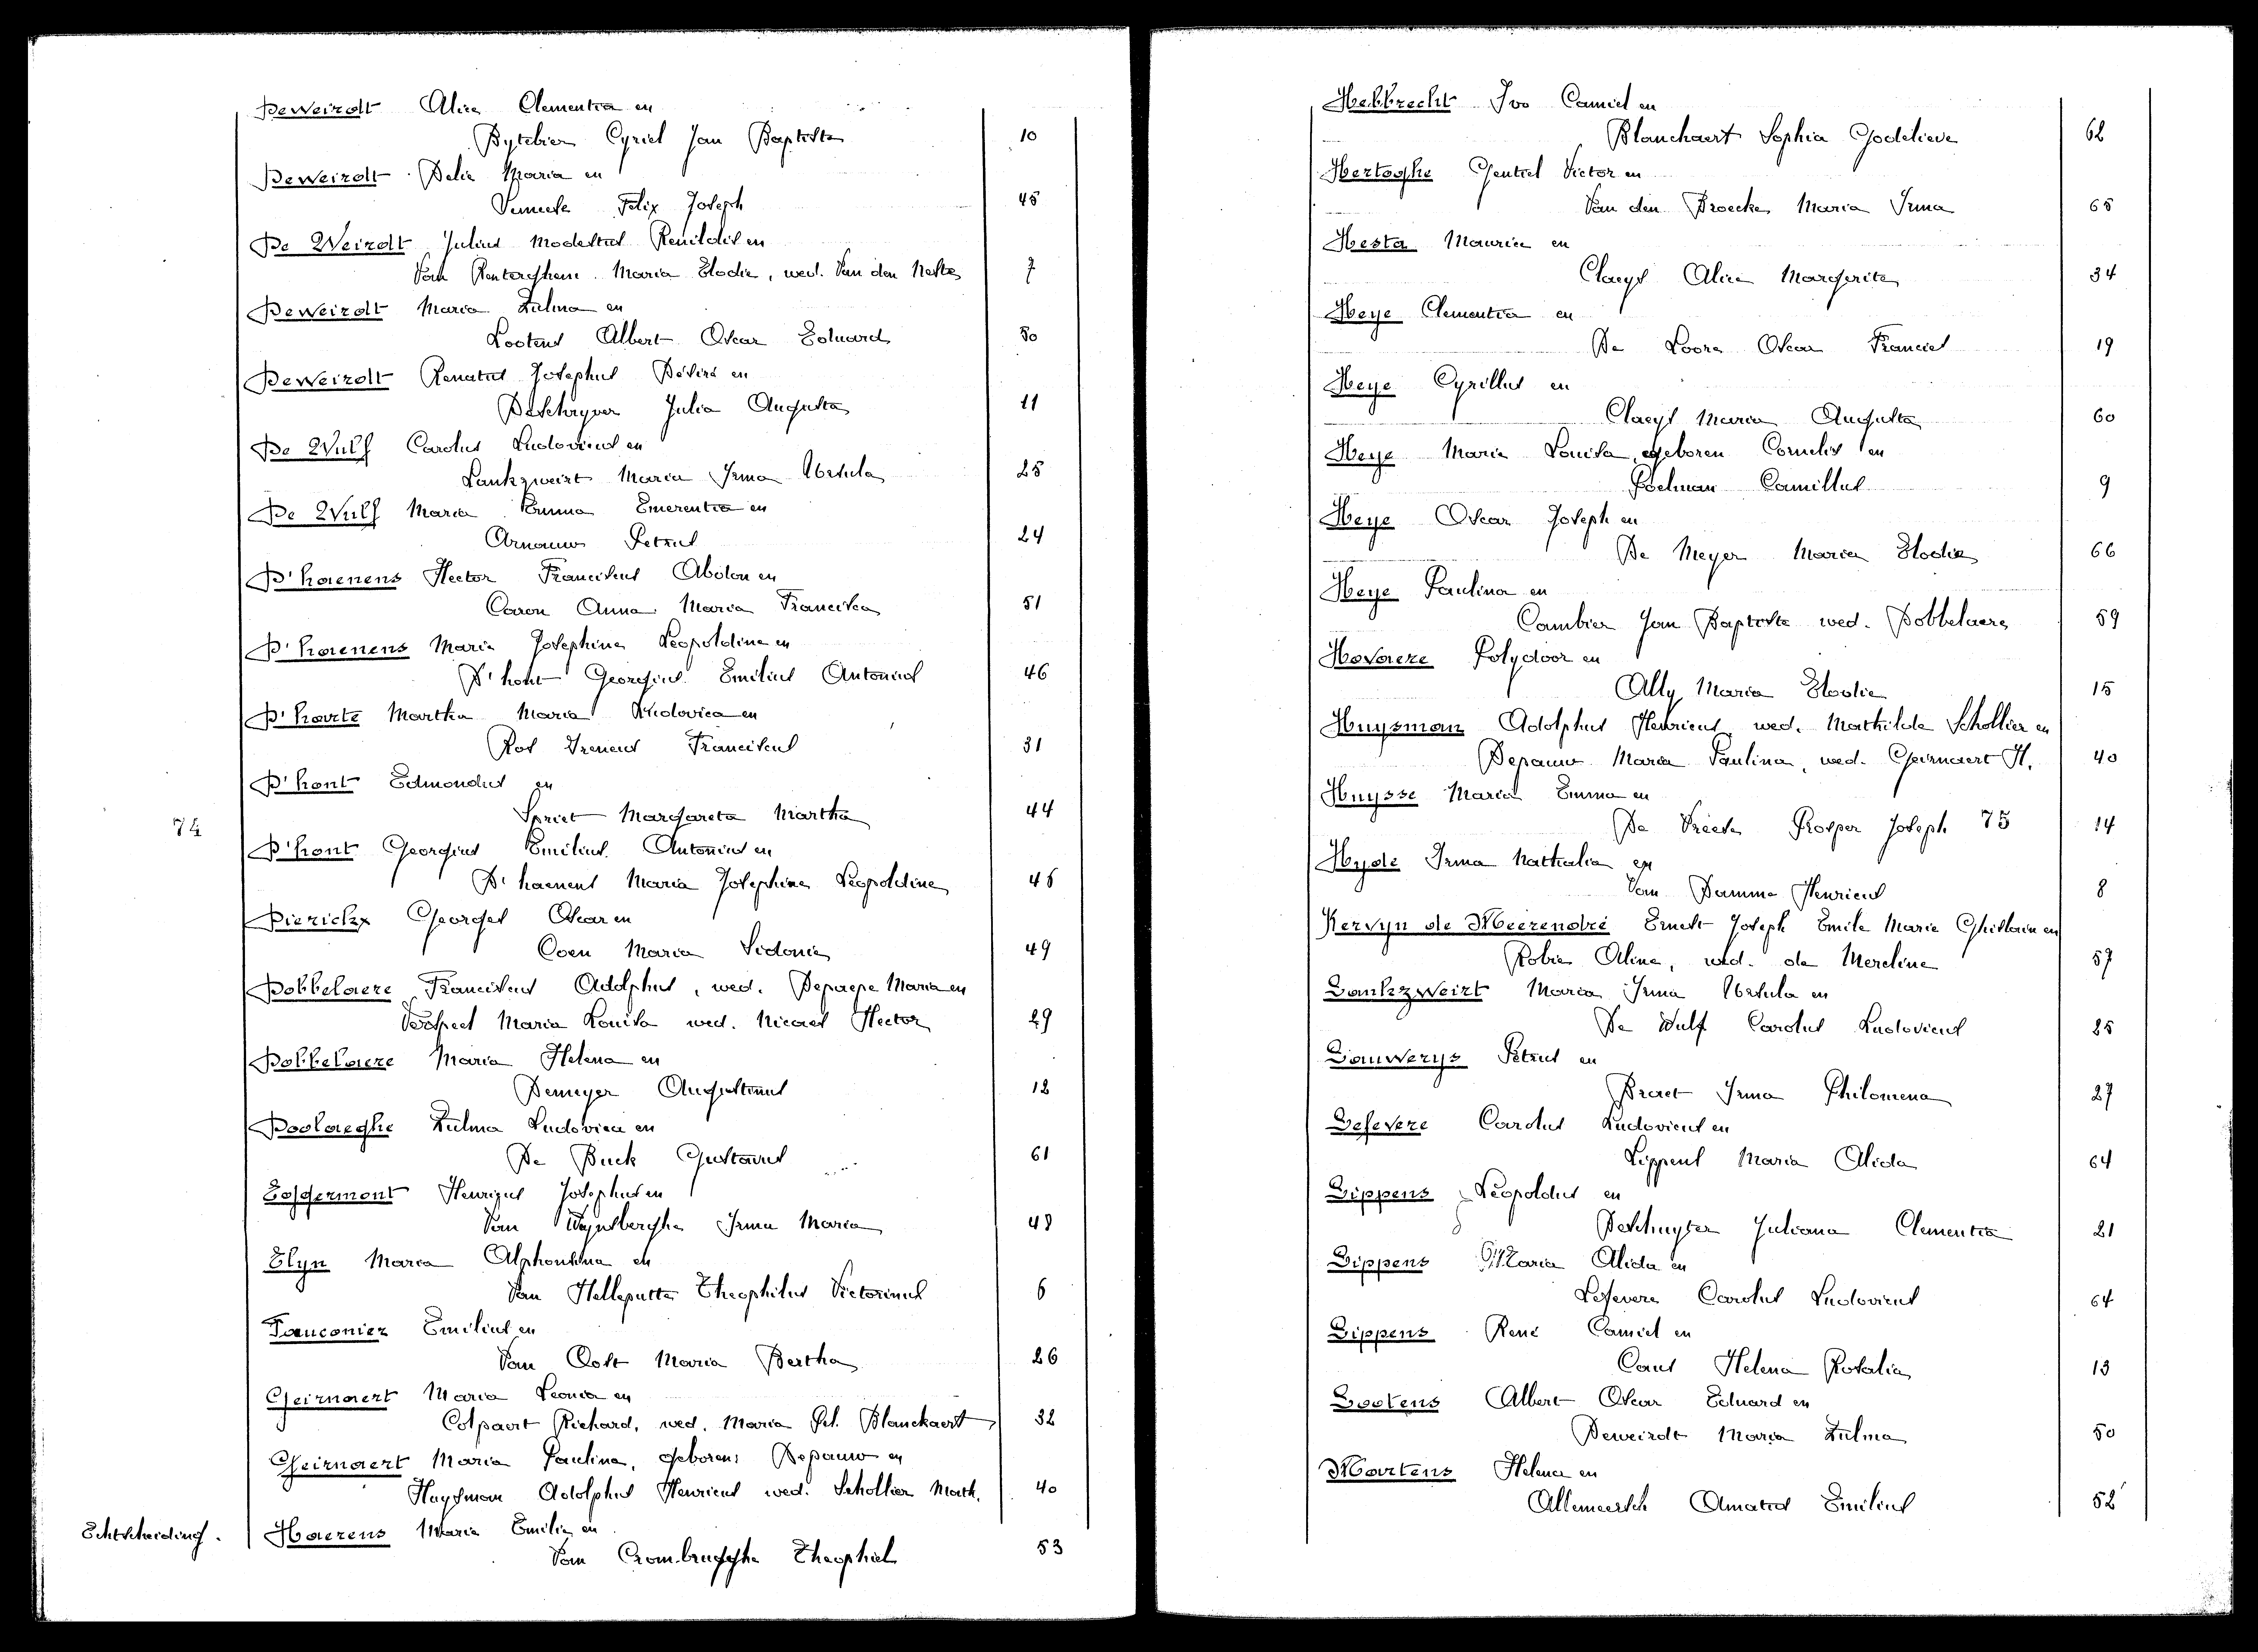 Deweirdt Alice Clementia en
Bytebier Cyriel Jan Baptiste 10
Deweirdt Delia Maria en
Felix Joseph 45
De Weirdt Julius Modestus Renildis en
Van Renterghem Maria Elodie, wed. Van den Neste 7
Deweirdt Maria Zulma en
Lootens Albert Oscar Eduard 50
Deweirdt Renatus Josephus Désiré en
Deschryver Julia Augusta 11
De Wulf Carolus Ludovicus en
Lankzweirt Maria Irma Ursula 25
De Wulf Maria Emma Emerentia en
Arnauw Petrus 24
D'haenens Hector Franciscus Abdon en
Caron Anna Maria Francisca 51
D'haenens Maria Josephina Leopoldina en
D'hont Georgius Emilius Antonius 46
D'harte Martha Maria Ludovica en
Rot Ireneus Franciscus 31
D'hont Edmondus en
Spriet Margareta Martha 44
74
D'hont Georgius Emilius Antonius en
D'haenens Maria Josephina Leopoldina 46
Dierickx Georges Oscar en
Coen Maria Sidonie 49
Dobbelaere Franciscus Adolphus, wed. Depaepe Maria en
Verspeet Maria Louisa wed. Nicaes Hector 29
Dobbelaere Maria Helena en
Demeyer Augustinus 12
Doolaeghe Zulma Ludovica en
De Buck Gustavus 61
Eggermont Henricus Josephus en
Van Wynsberghe Irma Maria 48
Elyn Maria Alphonsina en
Van Helleputte Theophilus Victorinus 6
Fauconier Emilius en
Van Oost Maria Bertha 26
Geirnaert Maria Leonia en
Colpaert Richard, wed. Maria Bl. Blanckaert 32
Geirnaert Maria Paulina, geboren: Depauw en
Huysman Adolphus Henricus wed. Schollier Math. 40
Echtscheiding. Haerens Maria Emilie en
Van Crombrugghe Theophiel 53
Hebbrecht Ivo Camiel en
Blanchaert Sophia Godelieve 62
Hertoghe Gentiel Victor en
Van den Broecke Maria Irma 65
Hesta Maurice en
Claeys Alice Margerite 34
Heye Clementia en
De Loore Oscar Franciel 19
Heye Cyrillus en
Claeys Maria Augusta 60
Heye Marie Louisa, geboren Cornelis en
Poelman Camillus 9
Heye Oscar Joseph en
De Meyer Maria Elodie 66
Heye Paulina en
Cambier Jan Baptiste wed. Dobbelaere 59
Hovaere Polydoor en
Ally Maria Elodie 15
Huysman Adolphus Henricus wed. Mathilde Schollier en
Depauw Maria Paulina, wed. Geirnaert H. 40
Huysse Maria Emma en
De Vriese Prosper Joseph 75 14
Hyde Irma Nathalia en
Van Damme Henricus 8
Kervyn de Meerendré Ernest Joseph Emile Marie Ghislain en
Robie Aline, wed. de Mereline 57
Lankzweirt Maria Irma Ursula en
De Wulf Carolus Ludovicus 25
Lauwerys Petrus en
Braet Irma Philomena 27
Lefevere Carolus Ludovicus en
Lippens Maria Alida 64
Lippens Leopoldus en
Deschuyter Juliana Clementia 21
Lippens Maria Alida en
Lefevere Carolus Ludovicus 64
Lippens René Camiel en
Caus Helena Rosalia 13
Lootens Albert Oscar Eduard en
Deweirdt Maria Zulma 50
Martens Helena en
Allemeersch Amatus Emilius 52